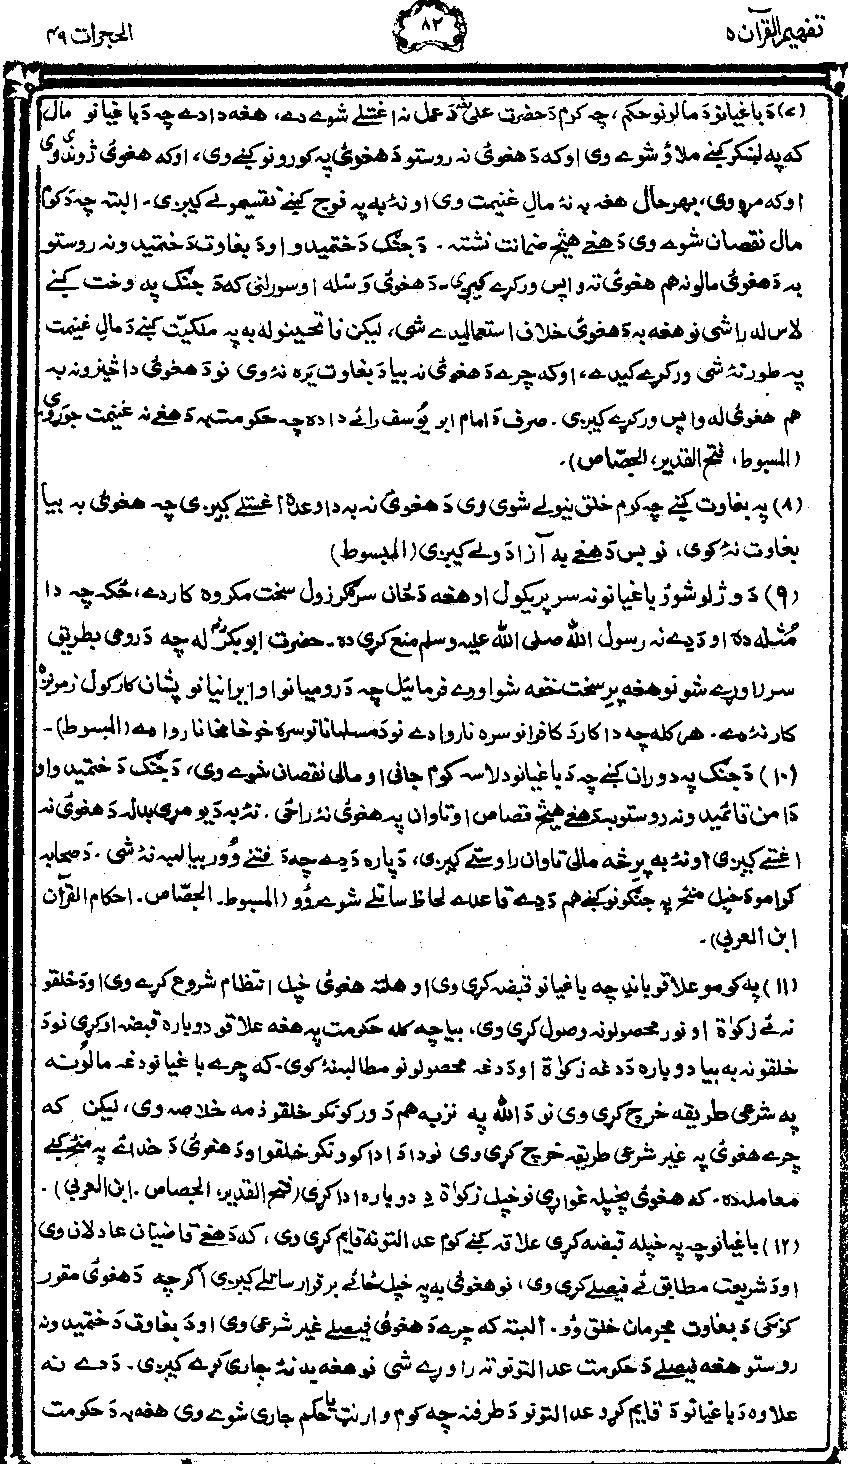 تفهیم القرآن ۵
۸۲
الحجرات ۴۹
(۷) دَ باغیانو دَ مالونو حکم، چہ کوم دَ حضرت علیؓ دَ عمل نہ اغستلے شوے دے، هغہ دا دے چہ دَ باغیانو مال
کہ پہ لښکر کښے ملاؤ شوے وی او کہ دَ هغوئ نہ روستو دَ هغوئ پہ کورونو کښے وی، او کہ هغوئ ژوندی وی
او کہ مړہ وی، بهرحال هغہ بہ نہ مالِ غنیمت وی او نۂ بہ پہ فوج کښے تقسیمولے کیږی۔ البتہ چہ دَ کوم
مال نقصان شوے وی دَ هغے هیڅ ضمانت نشتہ. دَ جنګ دَ ختمیدو او دَ بغاوت دَ ختمیدو نہ روستو
بہ دَ هغوئ مالونہ هم هغوئ تہ واپس ورکړے کیږی۔ دَ هغوئ وَسلہ او سورلئ کہ دَ جنګ پہ وخت کښے
لاس لہ راشی نو هغہ بہ دَ هغوئ خلاف استعمالیدے شی، لیکن فاتحینو لہ بہ پہ ملکیت کښے دَ مالِ غنیمت
پہ طور نۂ شی ورکړے کیدے، او کہ چرے دَ هغوئ نہ بیا دَ بغاوت یرہ نۂ وی نو دَ هغوئ دا څیزونہ بہ
هم هغوئ لہ واپس ورکړے کیږی. صرف دَ امام ابو یُوسف رائے دا دہ چہ حکومت بہ دَ هغے نہ غنیمت جوړوی
(المبسوط، فتح القدیر، الجصّاص)۔
(۸) پہ بغاوت کښے چہ کوم خلق نیولے شوی وی دَ هغوئ نہ بہ دا وعدہ اغستلے کیږی چہ هغوئ بہ بیا
بغاوت نۂ کوی، نو بس دَ هغے بہ آزادولے کیږی (المبسوط)
(۹) دَ وژلو شوؤ باغیانو نہ سر پریکول او هغہ دَ ځان سره ګرزول سخت مکروہ کار دے، ځکہ چہ دا
مُثلہ دہ او دِدے نہ رسول اللہ صلی اللہ علیہ وسلم منع کړی دہ۔ حضرت ابوبکرؓ لہ چہ دَ رومی بطریق
سر راوړے شو نو هغہ پرِ سخت خفہ شو او وے فرمائیل چہ دَ رومیانو او ایرانیانو پشان کار کول زمونږہ
کار نۂ دے. هر کلہ چہ دا کار دَ کافرانو سرہ ناروا دے نو دَ مسلمانانو سرہ خو خامخا ناروا دے (المبسوط)۔
(۱۰) دَ جنګ پہ دوران کښے چہ دَ باغیانو دَ لاسہ کوم جانی او مالی نقصان شوے وی، دَ جنګ دَ ختمیدو او
دَ امن قائمیدو نہ روستو بہ دَ هغے هیڅ قصاص او تاوان پہ هغوئ نۂ راځی. نۂ بہ دَ یو مړی بدلہ دَ هغوئ نہ
اغستے کیږی او نۂ بہ پرِ څہ مالی تاوان راوستے کیږی، دَ پارہ دَ دے چہ دَ فتنے وُور بیا لمبہ نۂ شی. دَ صحابہ
کرامو دَ خپل منځ پہ جنګونو کښے هم دَ دے قاعدے لحاظ ساتلے شوے وُو (المبسوط۔ الجصّاص. احکام القرآن
ابن العربی)۔
(۱۱) پہ کومو علاقو باندِ چہ باغیانو قبضہ کړی وی او هلتہ هغوئ خپل انتظام شروع کړے وی او دَ خلقو
نہ ئے زکوٰۃ او نور محصولونہ وصول کړی وی، بیا چہ کلہ حکومت پہ هغہ علاقو دوبارہ قبضہ اوکړی نو دَ
خلقو نہ بہ بیا دوبارہ دَ دغہ زکوٰۃ او دَ دغہ محصولونو مطالبہ نۂ کوی۔ کہ چرے باغیانو دغہ مالونہ
پہ شرعی طریقہ خرچ کړی وی نو دَ اللہ پہ نزد بہ هم دَ ورکونکو خلقو ذمہ خلاصہ وی، لیکن کہ
چرے هغوئ پہ غیر شرعی طریقہ خرچ کړی وی نو دا دَ ادا کوونکو خلقو او دَ هغوئ دَ خدائے پہ منځ کښے
معاملہ دہ۔ کہ هغوئ پخپلہ غواړی نو خپل زکوٰۃ دِ دوبارہ ادا کړی (فتح القدیر، الجصاص. ابن العربی)۔
(۱۲) باغیانو چہ پہ خپلہ قبضہ کړی علاقہ کښے کوم عدالتونہ قایم کړی وی، کہ دَ هغے قاضیان عادلان وی
او دَ شریعت مطابق ئے فیصلے کړی وی، نو هغوئ بہ پہ خپل ځائے برقرار ساتلے کیږی اګرچہ دَ هغوئ مقرر
کوونکی دَ بغاوت مجرمان خلق وُو. البتہ کہ چرے دَ هغوئ فیصلے غیر شرعی وی او دَ بغاوت دَ ختمیدو نہ
روستو هغہ فیصلے دَ حکومت عدالتونو تہ راوړے شی نو هغہ بہ نۂ جاری کړے کیږی. دَ دے نہ
علاوہ دَ باغیانو دَ قایم کړو عدالتونو دَ طرفنہ چہ کوم وارنټ یا حکم جاری شوے وی هغہ بہ دَ حکومت